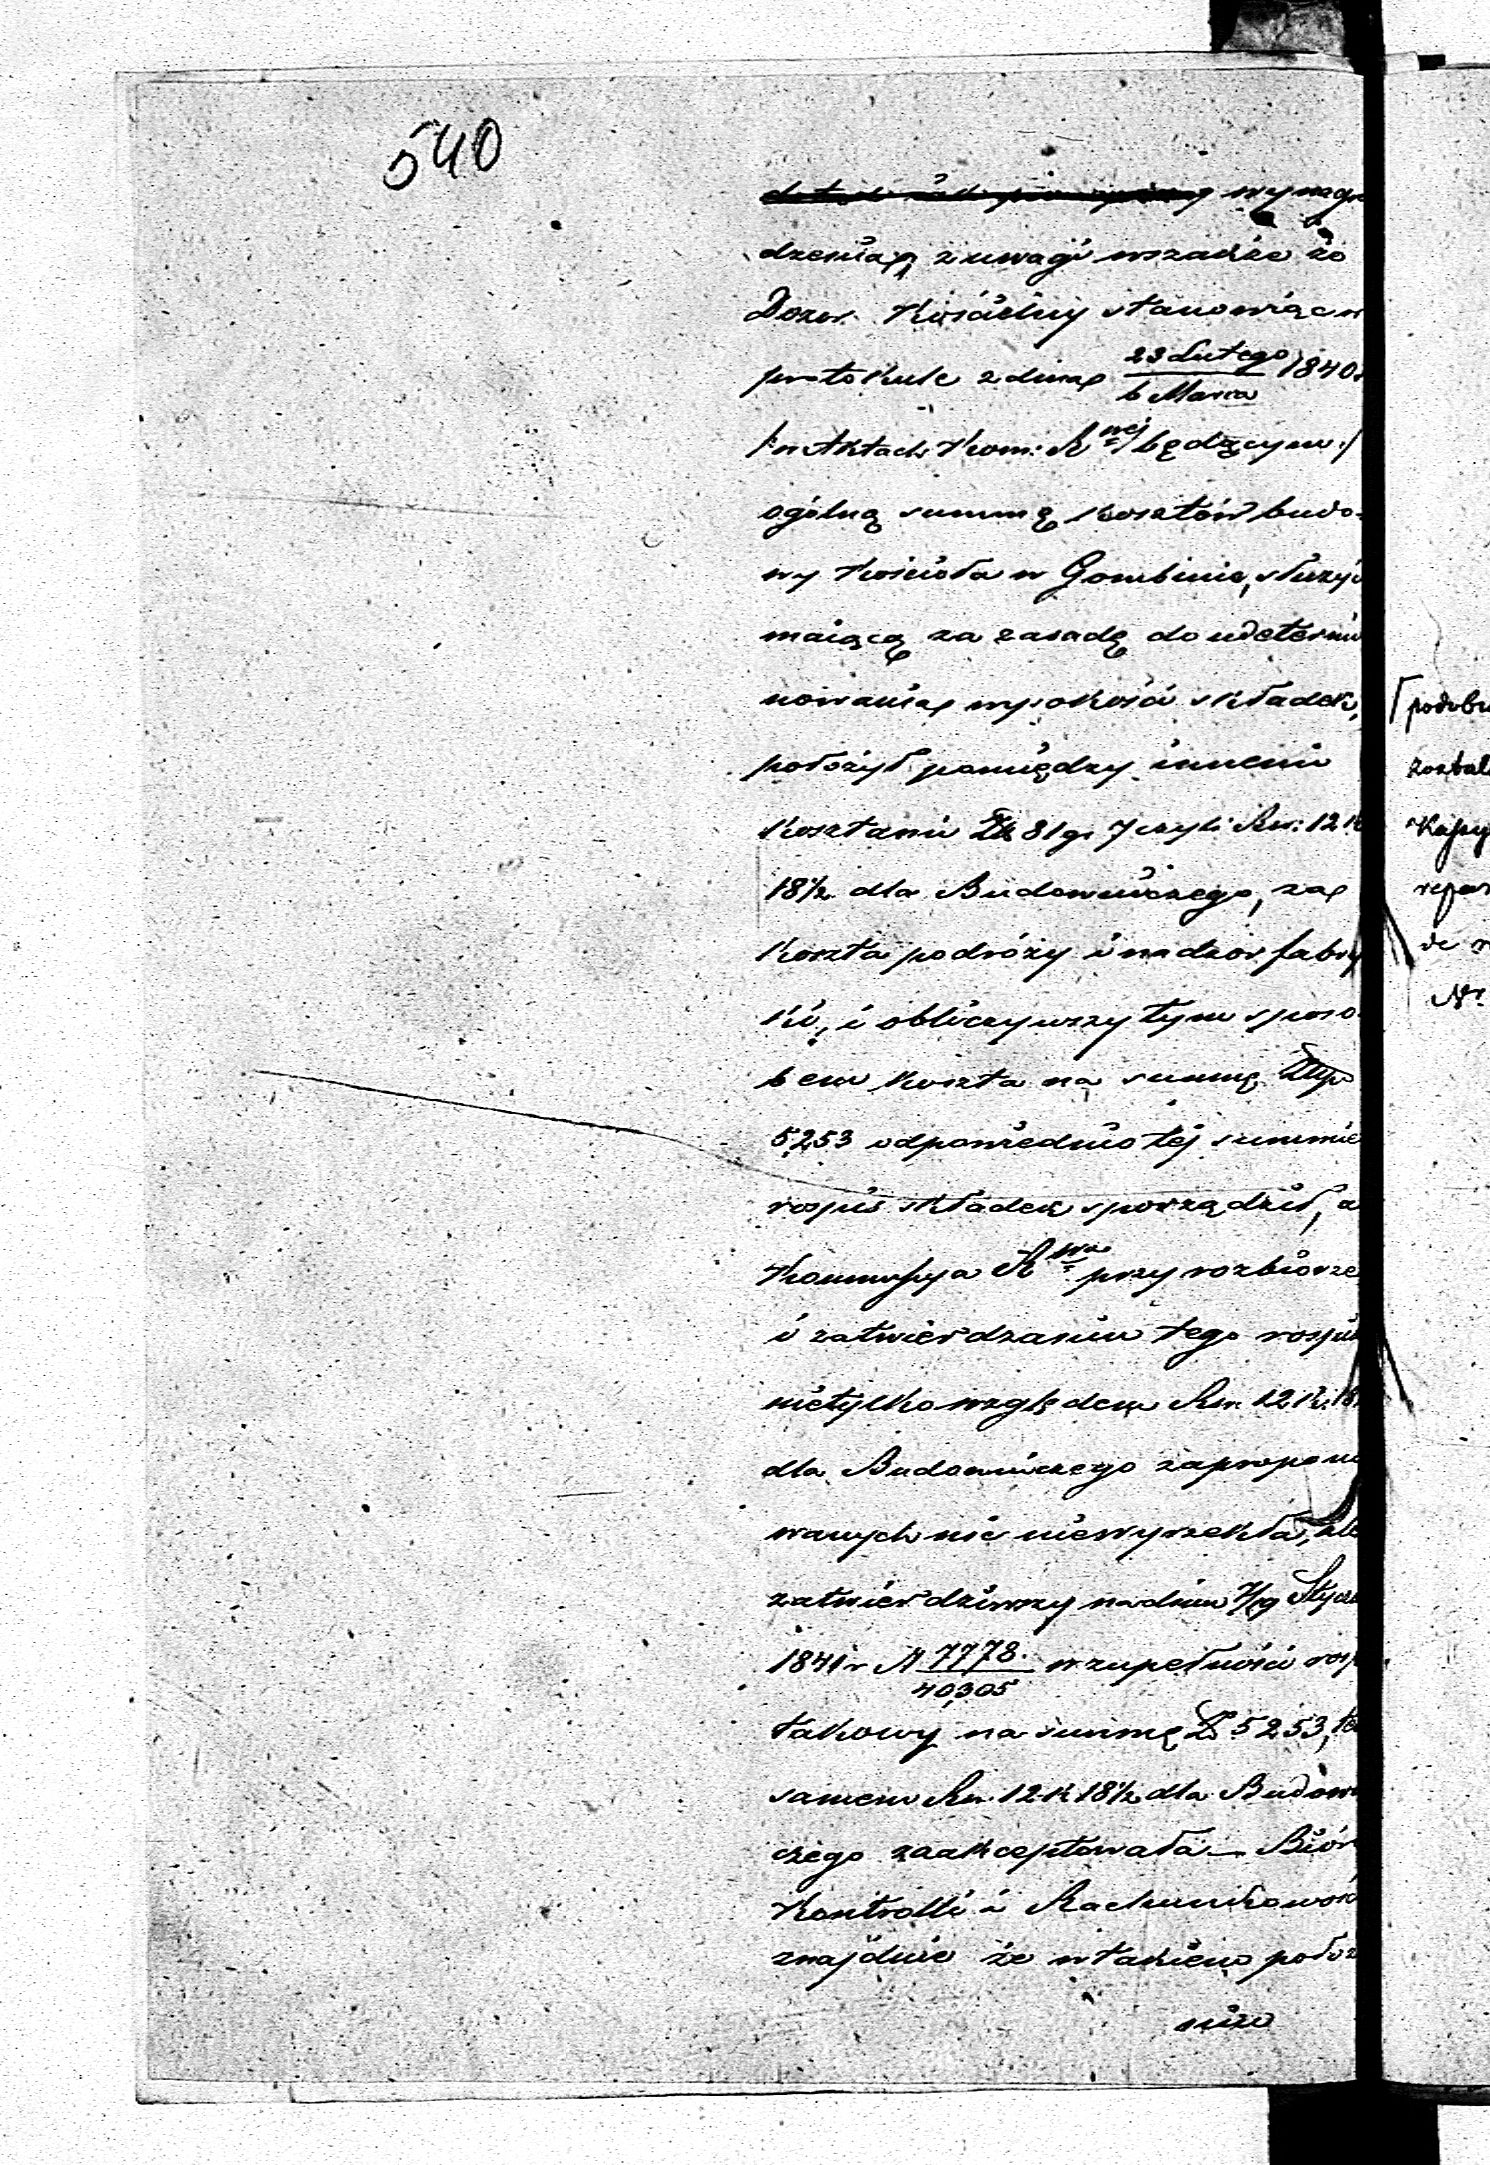 540
wynagro
dzenia, z uwagi wszakże że
Dozor Kościelny stanowiąc w
protokule z dnia 23 Lutego / 6 Marca 1840r
/: w Aktach Kom: R wej będącym :/
ogólną summę kosztów budo-
wy Kościoła w Gombinie, służyć
maiącą za zasadę do udetermi
nowania wysokości składek,
położył pomiędzy innemi
kosztami Zł 81 gr 7 czyli Rsr: 12 k
18½ dla Budowniczego, za
koszta podróży i nadzór fabry
ki, i obliczywszy tym sposo
bem koszta na summę Złp
5,253 odpowiednio tej summie
rospis składek sporządził, a
Kommissya R wa przy rozbiorze
i zatwierdzaniu tego rospisu
nietylko względem Rsr. 12 k. 18½
dla Budowniczego zapropono
wanych nic niewyrzekła, ale
zatwierdziwszy na dniu 7/19 Stycz
1841 r N 7778. / 40,305 w zupełności rosp
takowy na summę Zł 5253, tem
samem Rsr. 12 k 18½ dla Budowni
czego zaakceptowała — Biór
Kontrolli i Rachunkowości
znajduie że w takiem położ
niu
podobn
zostal
Kassy
repar
de
Nr